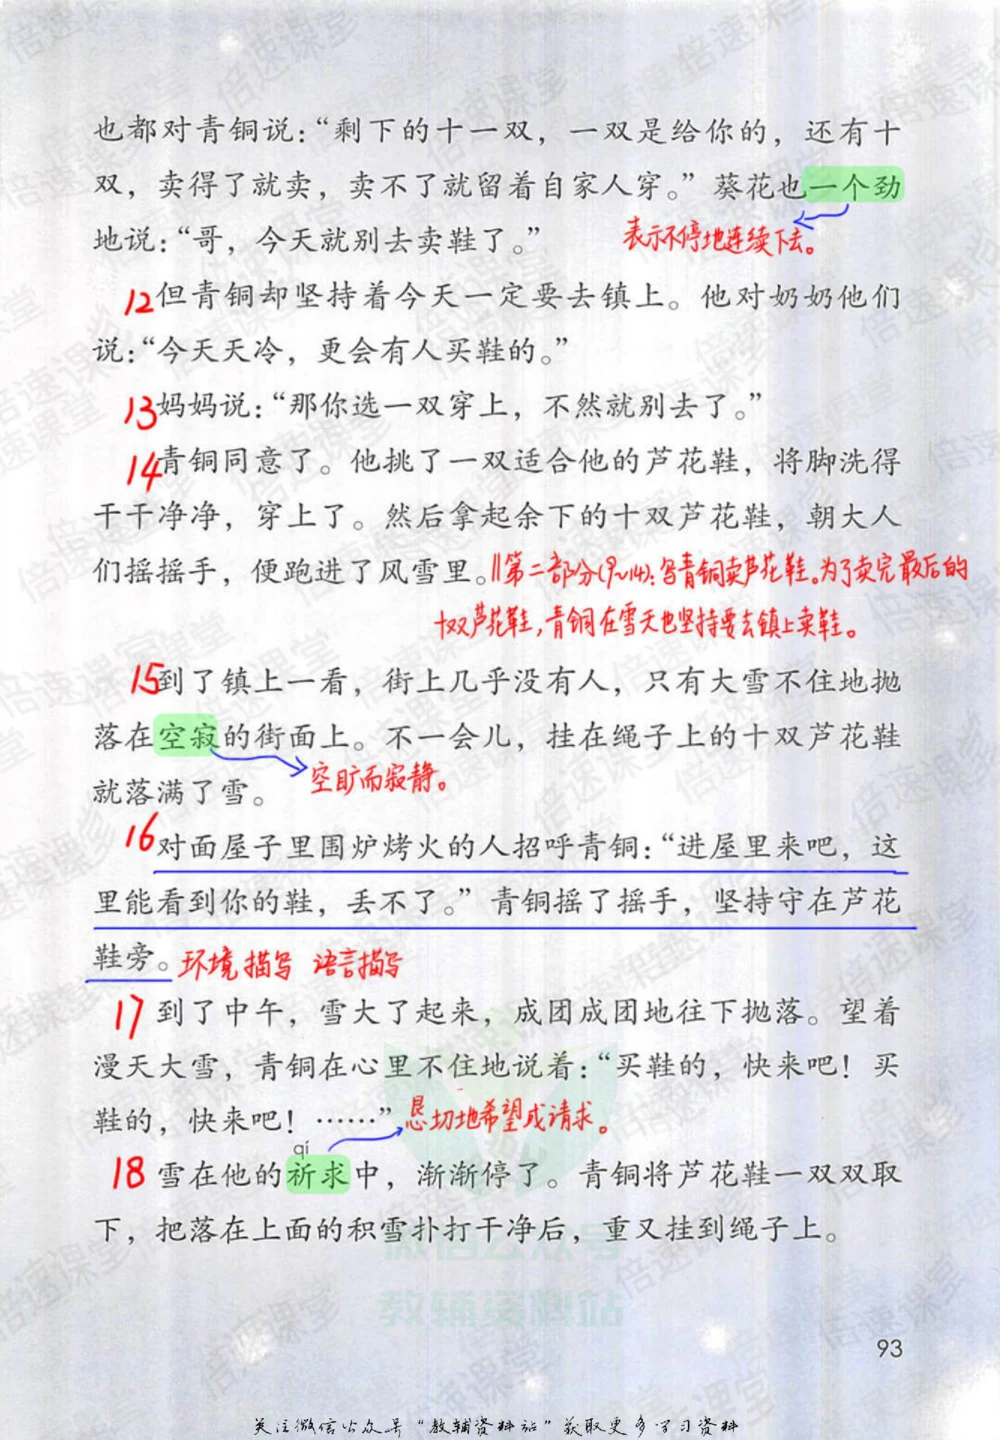 也都对青铜说：“剩下的十一双，一双是给你的，还有十
双，卖得了就卖，卖不了就留着自家人穿。”葵花也一个劲
地说：“哥，今天就别去卖鞋了。”
表示不停地连续下去。
12但青铜却坚持着今天一定要去镇上。他对奶奶他们
说：“今天天冷，更会有人买鞋的。”
13妈妈说：“那你选一双穿上，不然就别去了。”
14青铜同意了。他挑了一双适合他的芦花鞋，将脚洗得
干干净净，穿上了。然后拿起余下的十双芦花鞋，朝大人
们摇摇手，便跑进了风雪里。‖第二部分(9~14)：写青铜卖芦花鞋。为了卖完最后的
十双芦花鞋，青铜在雪天也坚持要去镇上卖鞋。
15到了镇上一看，街上几乎没有人，只有大雪不住地抛
落在空寂的街面上。不一会儿，挂在绳子上的十双芦花鞋
空旷而寂静。
就落满了雪。
16对面屋子里围炉烤火的人招呼青铜：“进屋里来吧，这
里能看到你的鞋，丢不了。”青铜摇了摇手，坚持守在芦花
鞋旁。环境描写 语言描写
17到了中午，雪大了起来，成团成团地往下抛落。望着
漫天大雪，青铜在心里不住地说着：“买鞋的，快来吧！买
鞋的，快来吧！……”恳切地希望或请求。
qí
18雪在他的祈求中，渐渐停了。青铜将芦花鞋一双双取
下，把落在上面的积雪扑打干净后，重又挂到绳子上。
微信公众号
教辅资料站
93
关注微信公众号“教辅资料站”获取更多学习资料
倍速课堂